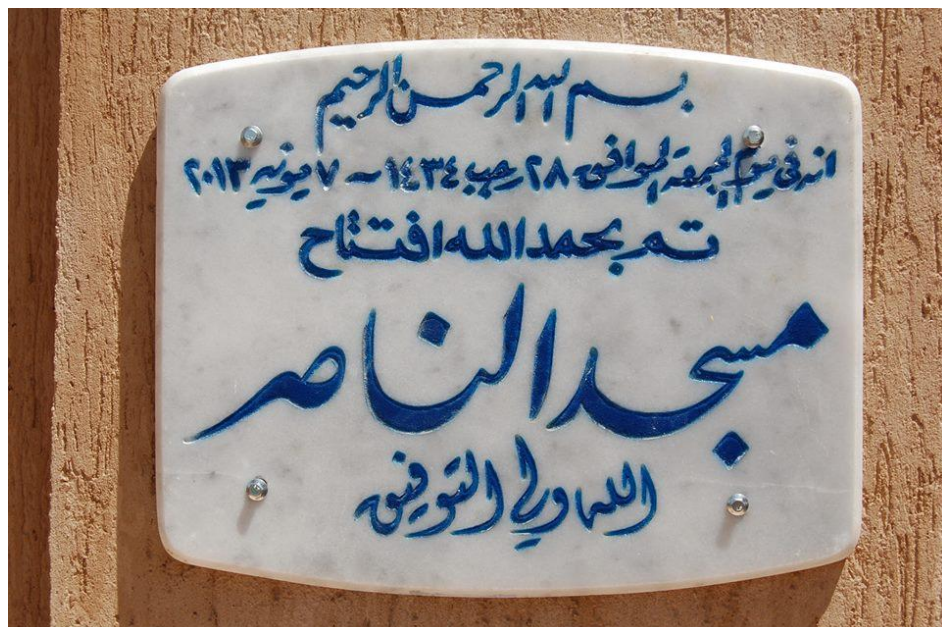 بسم الله الرحمن الرحيم
انه في يوم الجمعة الموافق ٢٨ رجب ١٤٣٤ ~ ٧ يونيه ٢٠١٣
تم بحمد الله افتتاح
مسجد الناصر
الله ولي التوفيق